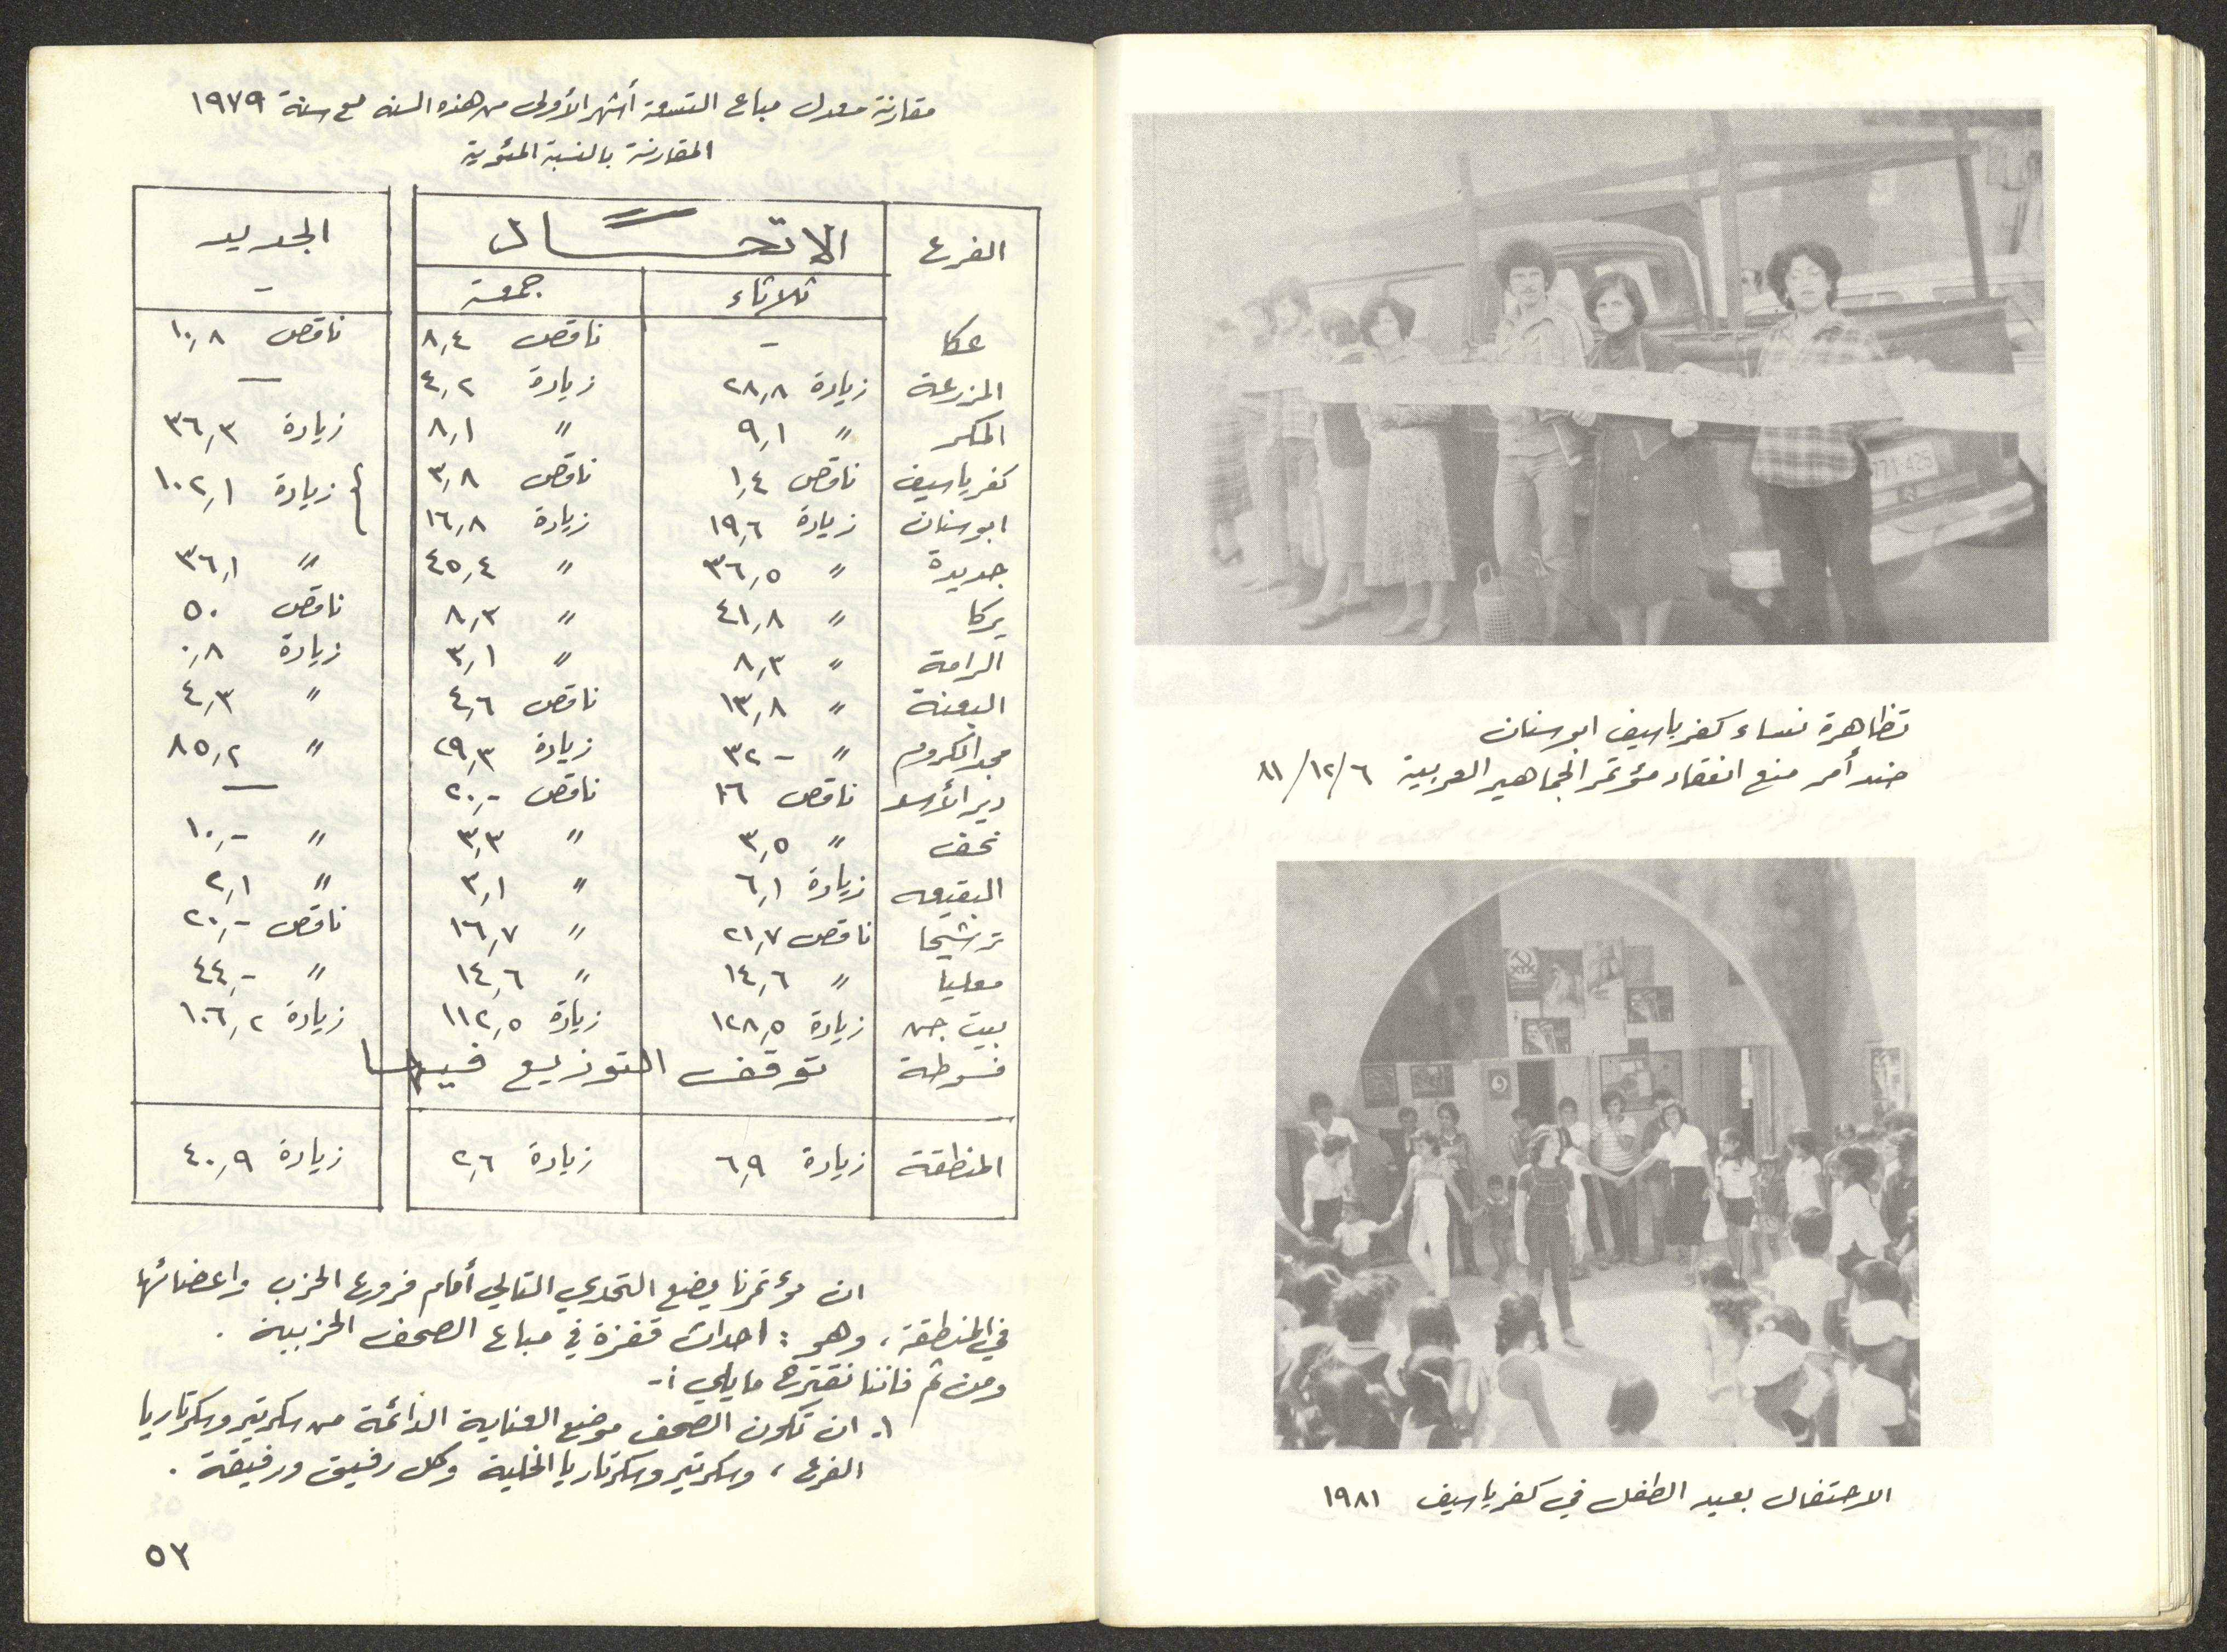 مقارنة معدل مباع التسعة أشهر الأولى من هذه السنه مع سنة ١٩٧٩
المقارنة بالنسبة المئوية
الفرع الاتحــــاد الجديد
ثلاثاء جمعة -
عكا - ناقص ٨,٤ ناقص ١٠,٨
المزرعة زيادة ٢٨,٨ زيادة ٤,٢ —
المكر 〃 ٩,١ 〃 ٨,١ زيادة ٣٦,٣
كفرياسيف ناقص ١,٤ ناقص ٣,٨ } زيادة ١٠٢,١
ابوسنان زيادة ١٩,٦ زيادة ١٦,٨
جديدة 〃 ٣٦,٥ 〃 ٤٥,٤ 〃 ٣٦,١
يركا 〃 ٤١,٨ 〃 ٨,٣ ناقص ٥٠
الرامة 〃 ٨,٣ 〃 ٣,١ زيادة ٠,٨
البعنة 〃 ١٣,٨ ناقص ٤,٦ 〃 ٤,٣
مجد الكروم 〃 -٣٢ زيادة ٢٩,٣ 〃 ٨٥,٢
دير الأسد ناقص ١٦ ناقص -,٢٠ —
نحف 〃 ٣,٥ 〃 ٣,٣ 〃 -,١٠
البقيعه زيادة ٦,١ 〃 ٣,١ 〃 ٢,١
ترشيحا ناقص ٢١,٧ 〃 ١٦,٧ ناقص -,٢٠
معليا 〃 ١٤,٦ 〃 ١٤,٦ 〃 -,٤٤
بيت جن زيادة ١٢٨,٥ زيادة ١١٢,٥ زيادة ١٠٦,٢
فسوطة توقف التوزيع فيهــا
المنطقة زيادة ٦,٩ زيادة ٢,٦ زيادة ٤٠,٩
ان مؤتمرنا يضع التحدي التالي أمام فروع الحزب واعضائها
في المنطقة، وهو : احداث قفزة في مباع الصحف الحزبية .
ومن ثم فاننا نقترح ما يلي :-
١. ان تكون الصحف موضع العناية الدائمة من سكرتير وسكرتاريا
الفرع ، وسكرتير وسكرتاريا الخلية وكل رفيق ورفيقة .
٥٣
771-425
تظاهرة نساء كفرياسيف ابوسنان
ضد أمر منع انعقاد مؤتمر الجماهير العربية ٨١/١٢/٦
الاحتفال بعيد الطفل في كفرياسيف ١٩٨١